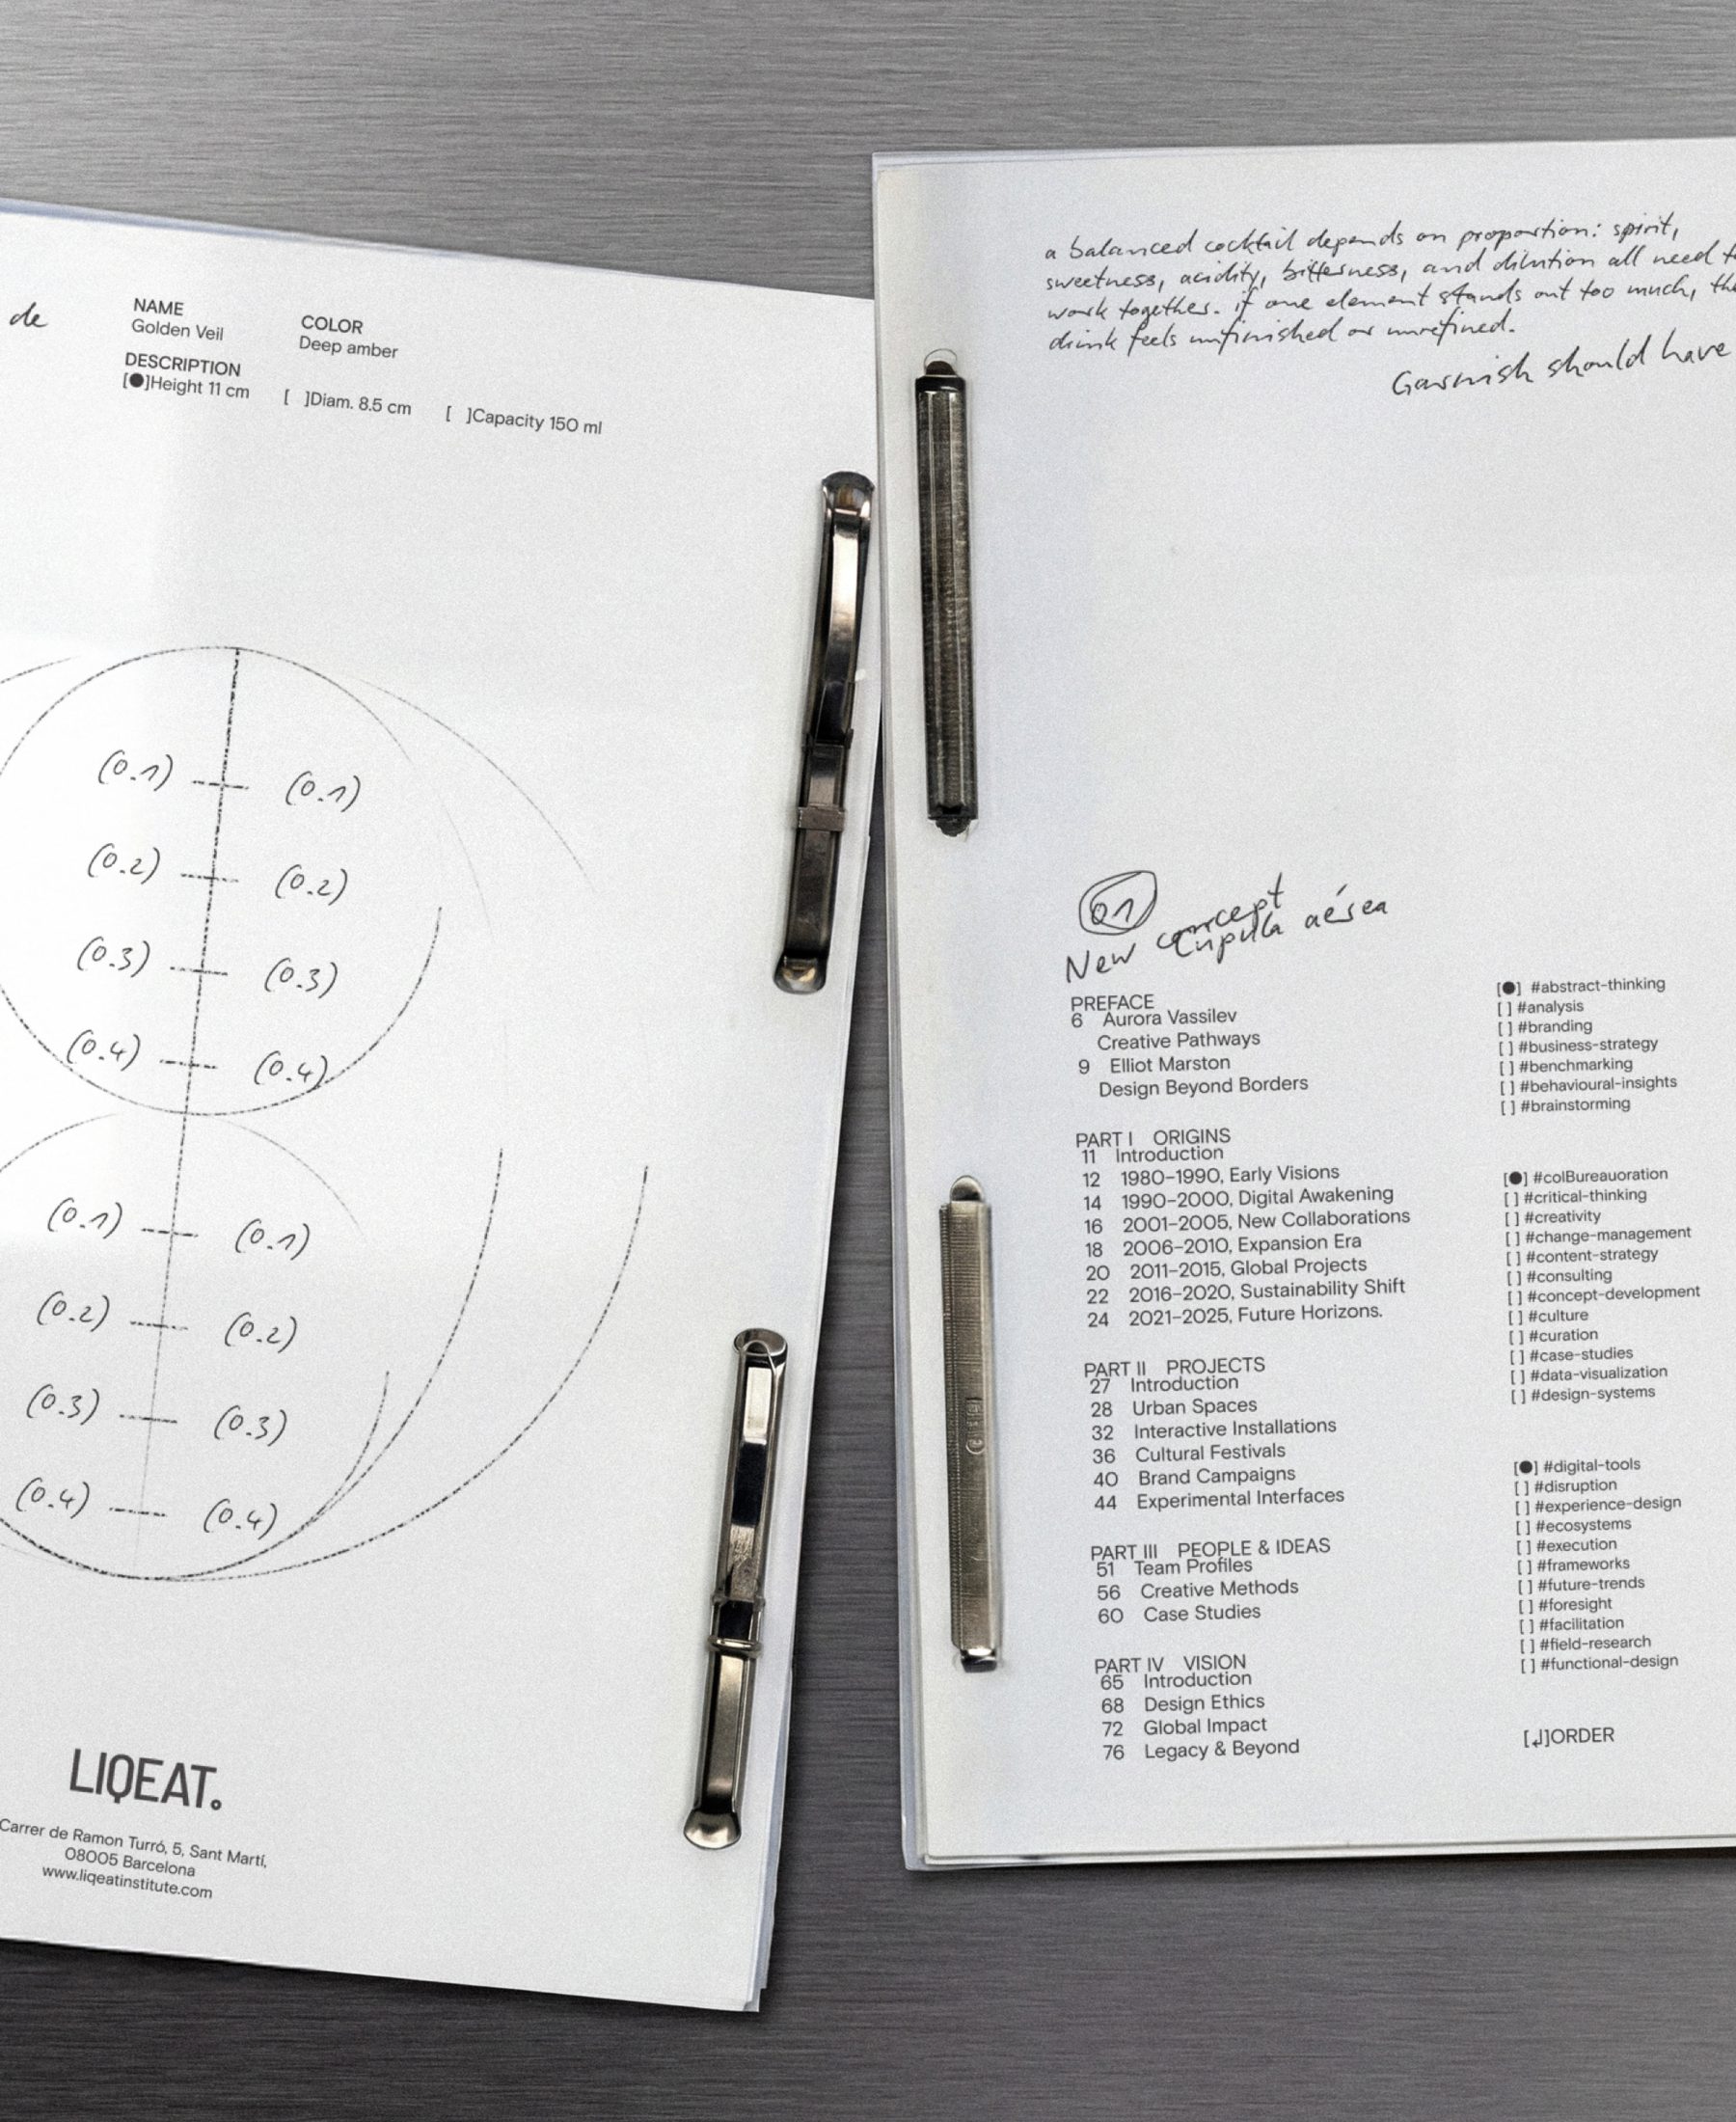 de
NAME
Golden Veil
COLOR
Deep amber
DESCRIPTION
[●]Height 11 cm [ ]Diam. 8.5 cm [ ]Capacity 150 ml
(0.1) (0.1)
(0.2) (0.2)
(0.3) (0.3)
(0.4) (0.4)
(0.1) (0.1)
(0.2) (0.2)
(0.3) (0.3)
(0.4) (0.4)
LIQEAT.
Carrer de Ramon Turró, 5, Sant Martí,
08005 Barcelona
www.liqeatinstitute.com
a balanced cocktail depends on proportion: spirit,
sweetness, acidity, bitterness, and dilution all need
work together. if one element stands out too much,
drink feels unfinished or unrefined.
Garnish should have
01
New concept
Cupula aérea
PREFACE
6 Aurora Vassilev
Creative Pathways
9 Elliot Marston
Design Beyond Borders
PART I ORIGINS
11 Introduction
12 1980–1990, Early Visions
14 1990–2000, Digital Awakening
16 2001–2005, New Collaborations
18 2006–2010, Expansion Era
20 2011–2015, Global Projects
22 2016–2020, Sustainability Shift
24 2021–2025, Future Horizons.
PART II PROJECTS
27 Introduction
28 Urban Spaces
32 Interactive Installations
36 Cultural Festivals
40 Brand Campaigns
44 Experimental Interfaces
PART III PEOPLE & IDEAS
51 Team Profiles
56 Creative Methods
60 Case Studies
PART IV VISION
65 Introduction
68 Design Ethics
72 Global Impact
76 Legacy & Beyond
[●] #abstract-thinking
[ ] #analysis
[ ] #branding
[ ] #business-strategy
[ ] #benchmarking
[ ] #behavioural-insights
[ ] #brainstorming
[●] #colBureauoration
[ ] #critical-thinking
[ ] #creativity
[ ] #change-management
[ ] #content-strategy
[ ] #consulting
[ ] #concept-development
[ ] #culture
[ ] #curation
[ ] #case-studies
[ ] #data-visualization
[ ] #design-systems
[●] #digital-tools
[ ] #disruption
[ ] #experience-design
[ ] #ecosystems
[ ] #execution
[ ] #frameworks
[ ] #future-trends
[ ] #foresight
[ ] #facilitation
[ ] #field-research
[ ] #functional-design
[↲]ORDER